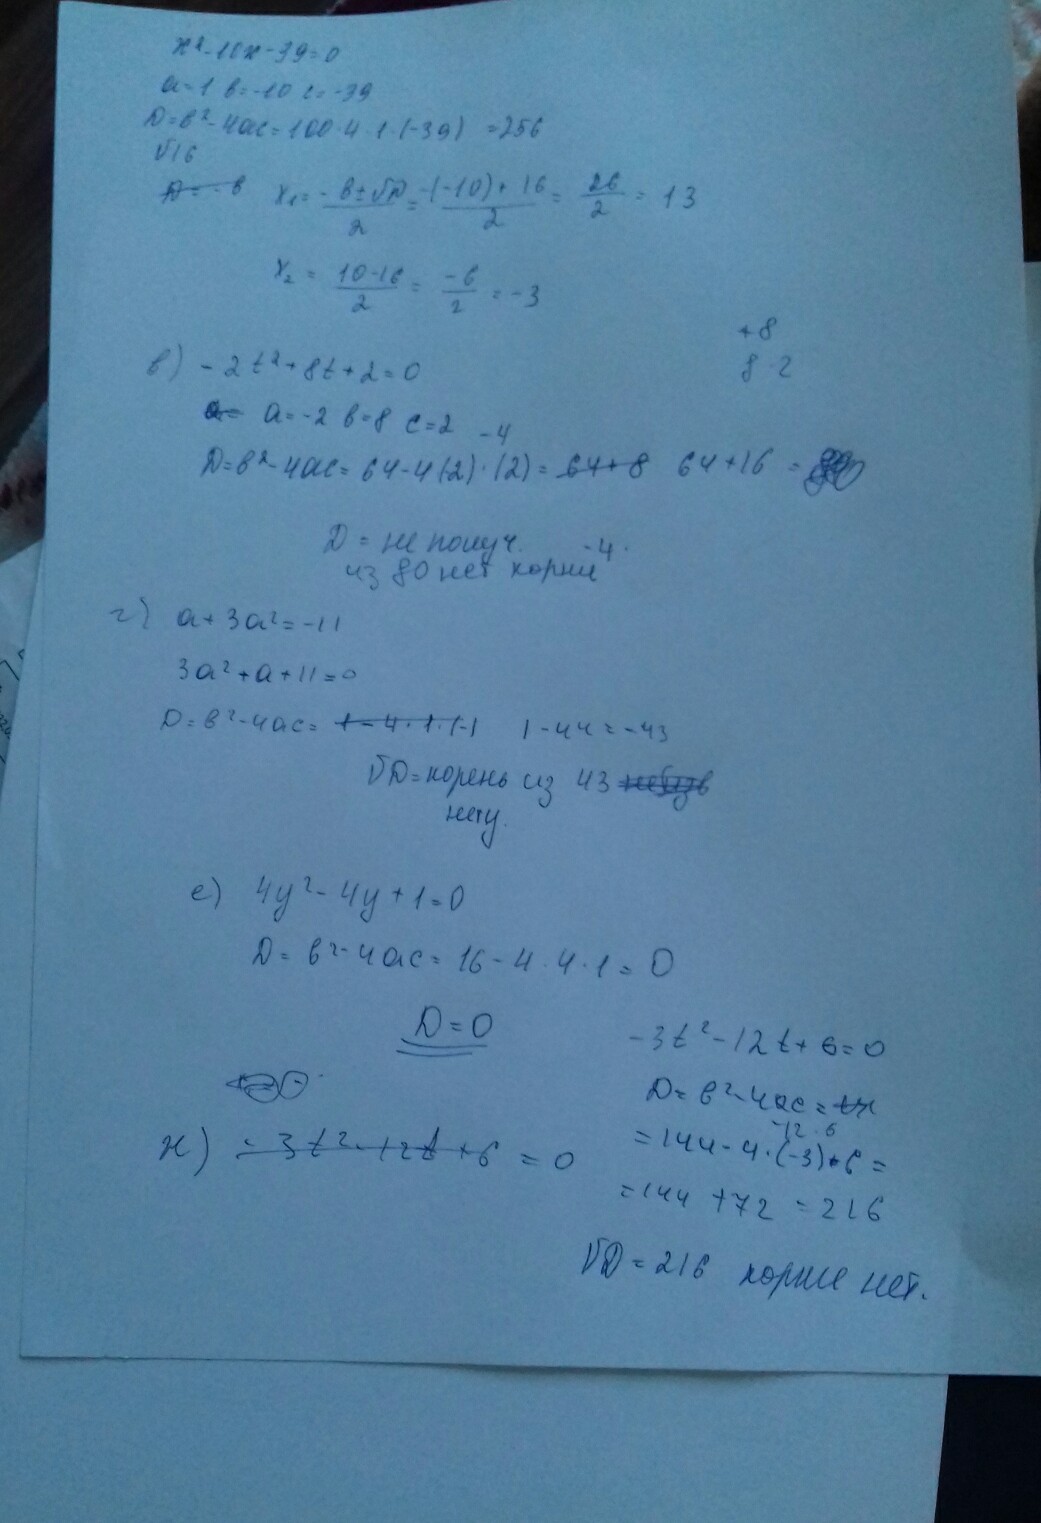 x²-10x-39=0
a=1 в=-10 c=-39
D=в²-4ac=100·4·1·(-39) =256
√16
D=-в x₁=-в±√D/2=-(-10)+16/2=26/2=13
x₂=10-16/2=-6/2=-3
+8
8·2
в) -2t²+8t+2=0
a= a=-2 в=8 c=2
-4
D=в²-4ac=64-4(2)·(2)=64+8 64+16 =
D= не получ. -4.
из 80 нет корни
г) a+3a²=-11
3a²+a+11=0
D=в²-4ac= 1-4·1·(-1 1-44=-43
√D=корень из 43
нету.
е) 4y²-4y+1=0
D=в²-4ac=16-4·4·1=0
D=0
ж) -3t²-12t+6=0
-3t²-12t+6=0
D=в²-4ac=
-12·6
=144-4·(-3)·6=
=144+72=216
√D=216 корне нет.